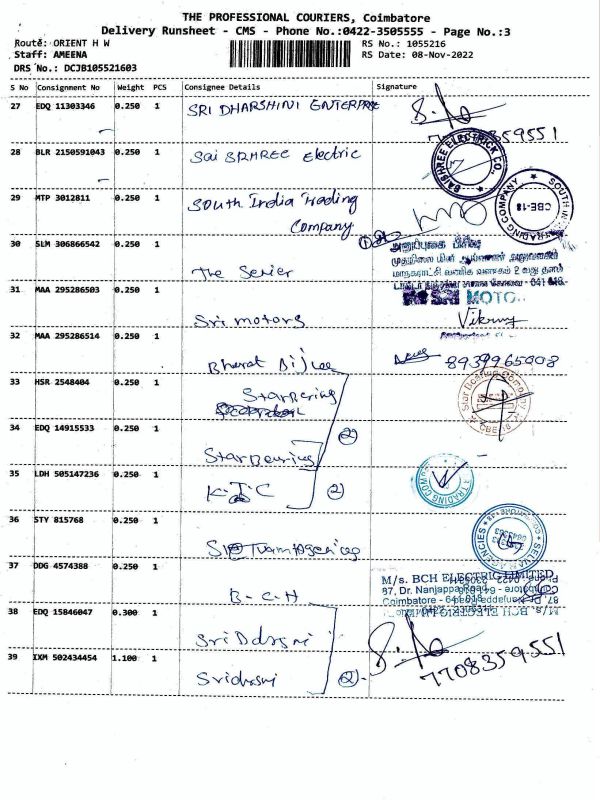 THE PROFESSIONAL COURIERS, Coimbatore
Delivery Runsheet - CMS - Phone No.:0422-3505555 - Page No.:3
Route: ORIENT H W
Staff: AMEENA
DRS No.: DCJB105521603
RS No.: 1055216
RS Date: 08-Nov-2022
S No Consignment No Weight PCS Consignee Details Signature
27 EDQ 11303346 0.250 1 SRI DHARSHINI ENTERPRISE
28 BLR 2150591043 0.250 1 Sai SRHREE Electric
SAISHREE ELECTRICK CO.
29 MTP 3012811 0.250 1 South India Trading
Company
SOUTH IN TRADING COMPANY
CBE-18
30 SLM 306866542 0.250 1 The Senier
31 MAA 295286503 0.250 1 Sri motors
SRI MOTO
32 MAA 295286514 0.250 1 Bharat
33 HSR 2548404 0.250 1 Star Bering
Star Bearing Company
CBE-18
34 EDQ 14915533 0.250 1 Star Bearing (2)
35 LDH 505147236 0.250 1 K-T-C (2)
TRADING COMP
36 STY 815768 0.250 1
AGENCIES
37 DDG 4574388 0.250 1 B-C-H
M/s. BCH ELECTRIC LIMITED,
87, Dr. Nanjappa Road
Coimbatore -
38 EDQ 15846047 0.300 1
39 IXM 502434454 1.100 1 (2)
7708359551